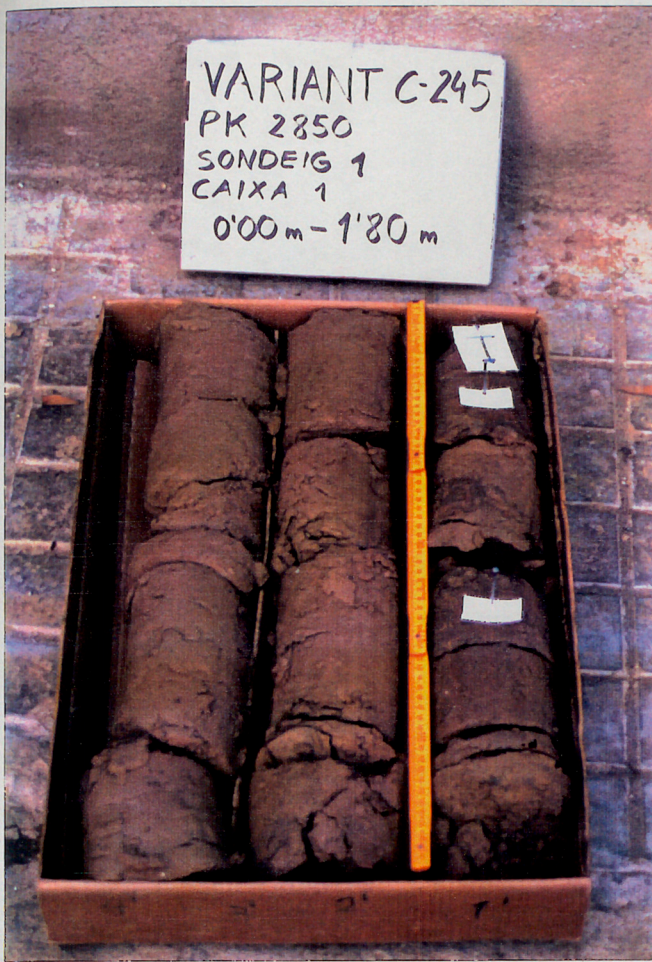 VARIANT C-245
PK 2850
SONDEIG 1
CAIXA 1
0'00 m - 1'80 m
I